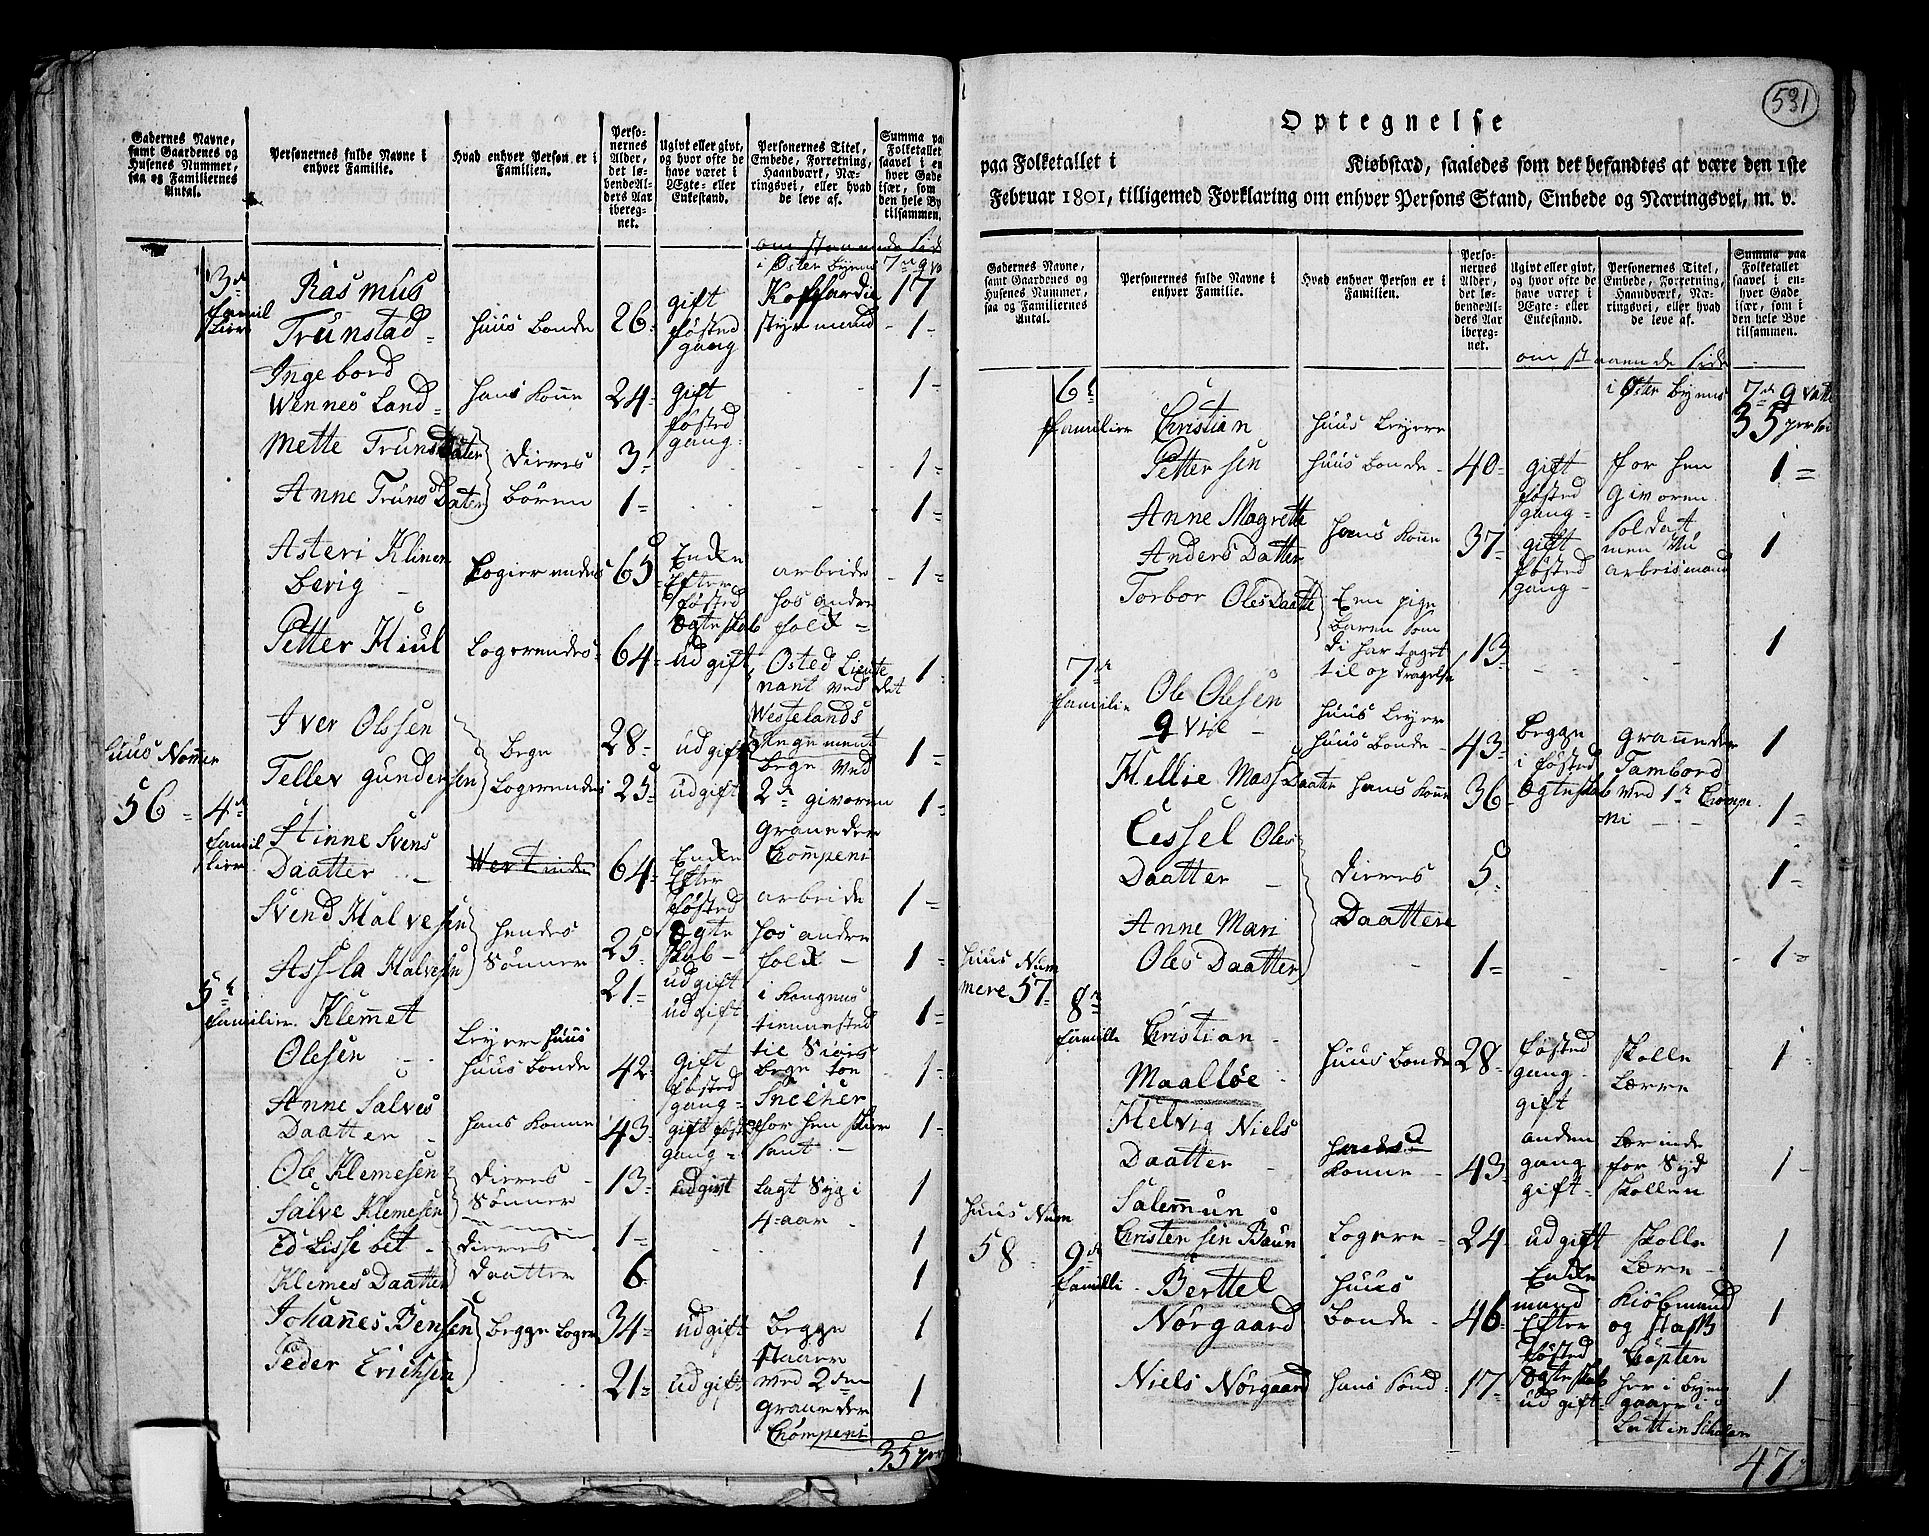 Gadernes Navne,
samt Gaardenes og
Husenes Nummer,
saa og Familiernes
Antal.
Personernes fulde Navne i
enhver Familie.
Hvad enhver Person er i
Familien.
Perso-
nernes
Alder,
det lø-
bende Al-
ders Aar
ibereg-
net.
Ugivt eller givt,
og hvor ofte de
have været i
Ægte- eller
Enkestand.
Personernes Titel,
Embede, Forretning,
Haandværk, Næ-
ringsvei, eller hvad
de leve af.
Summa paa
Folketallet
saavel i en-
hver Gade
især, som i
den hele Bye
tilsammen.
om staaende Side
i Øster byens 7de
3de Familier
Rasmus Trunstad huus bonde 26 gift føsted gang Koffardie styrmand 17 1
Ingebord Wennesland hans kone 24 gift føsted gang 1
Mette Trunsdater 3 1
Anne Trunsdater dieres børen 1 1
Asteri Klinenberig Logierendes 65 Enke efter føsted ægteskab arbeide hos andre folk 1
Petter Hiul Logerendes 64 ud gift 1
Iver Olssen 28 ud gift 1
Tellev Gundersen begge Logerendes 25 ud gift 1
huus Nomer 56 4de Familier
Stinne Svens Daatter 64 Enke efter føsted ægteskab arbeide hos andre folk 1
Svend Halvesen hendes Sønner 25 ud gift 1
Assla Halvesen 21 ud gift 1
5te Familier Klemet Olesen Leyere huus huus bonde 42 gift føsted gang 1
Anne Salves Daatter hans konne 43 gift føsted gang 1
Ole Klemesen dieres Sønner 13 ud gift lagt syg i 4 aar 1
Salve Klemesen 1 1
Ed Lissebet Klemes Daatter dieres daatter 6 1
Johannes Bensen begge Logere 34 ud gift begge staaere 1
Peder Erichsen 21 ud gift ved 2den granneder Compeni 1
35
531
Optegnelse
paa Folketallet i Kiøbstæd, saaledes som det befandtes at være den 1ste
Februar 1801, tilligemed Forklaring om enhver Persons Stand, Embede og Næringsvei, m. v.
Gadernes Navne,
samt Gaardenes og
Husenes Nummer,
saa og Familiernes
Antal.
Personernes fulde Navne i
enhver Familie.
Hvad enhver Person er i
Familien.
Perso-
nernes
Alder,
det lø-
bende Al-
ders Aar
ibereg-
net.
Ugivt eller givt,
og hvor ofte de
have været i
Ægte- eller
Enkestand.
Personernes Titel,
Embede, Forretning,
Haandværk, Næ-
ringsvei, eller hvad
de leve af.
Summa paa
Folketallet
saavel i en-
hver Gade
især, som i
den hele Bye
tilsammen.
om staaende Side
i Øster byens 7de
35
6te Familier Christian Pettersen huus Leyere huus bonde 40 gift føsted gang for hen givoren soldat 1
Anne Magrette Anders Datter hans kone 37 gift føsted gang 1
Torbor Oles Daatte Een pige baren som di har taget til op dragelse 13 1
7de Familie Ole Olesen huus Leyer huus bonde 43 begge i føsted ægteskab granneder Tambord ved 1te Compeni 1
Hellie Mass Daatter hans kone 36 1
Cessel Oles Daatter dieres Daattere 5 1
Anne Mari Oles Daatter 1 1
huus Nummere 57 8de Familie
Christian Maalløe huus bonde 28 føsted gang gift Skolle Lærre 1
Helvig Niels Daatter konne 43 anden gang gift 1
Salemun Christensen Baun Logere 24 ud gift Skolle Lære 1
huus Num 58 9de Familie
Berttel Nørgaard huus bonde 46 Enke mand efter føsted ægteskab Kiøbmand og 1
Niels Nørgaard hans sønd 17 ud gift 1
47